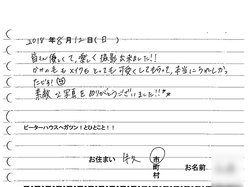 2018年8月12日(日)
皆さん優しくて、楽しく撮影出来ました!!
かみの毛もメイクもとっても可愛くしてもらって、本当にうれしかっ
たです!
素敵な写真をありがとうございました!!
ピーターハウスへガツン!ひとこと!!
お住まい 牛久 市 町 村 お名前